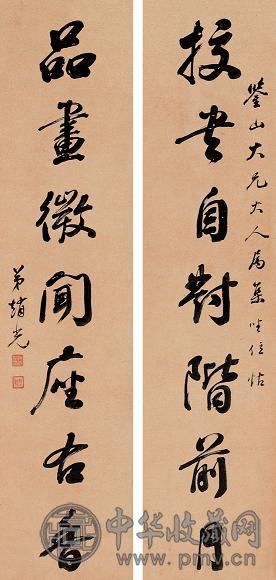 鑒山大兄大人屬集坐位帖
挍書自對階前月
品畫微聞座右香
弟趙光
中华收藏网
www.pmyc.cn